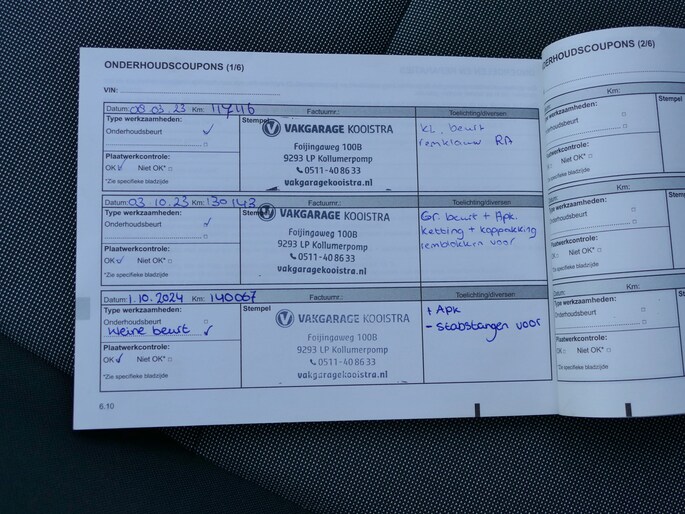 ONDERHOUDSCOUPONS (1/6)
VIN:
Datum: 08.03.23 Km:
Factuurnr.:
Toelichting/diversen
Type werkzaamheden:
Onderhoudsbeurt ✓
Stempel
VAKGARAGE KOOISTRA
Foijingaweg 100B
9293 LP Kollumerpomp
0511-40 86 33
vakgaragekooistra.nl
Kl. beurt
remklauw RA
Plaatwerkcontrole:
OK ✓ Niet OK* □
*Zie specifieke bladzijde
Datum: 03.10.23 Km: 130143
Factuurnr.:
Toelichting/diversen
Type werkzaamheden:
Onderhoudsbeurt ✓
Stempel
VAKGARAGE KOOISTRA
Foijingaweg 100B
9293 LP Kollumerpomp
0511-40 86 33
vakgaragekooistra.nl
Gr. beurt + Apk.
ketting + koppakking
remblokken voor
Plaatwerkcontrole:
OK ✓ Niet OK* □
*Zie specifieke bladzijde
Datum: 1.10.2024 Km: 140067
Factuurnr.:
Toelichting/diversen
Type werkzaamheden:
Onderhoudsbeurt □
kleine beurt ✓
Stempel
VAKGARAGE KOOISTRA
Foijingaweg 100B
9293 LP Kollumerpomp
0511-40 86 33
vakgaragekooistra.nl
+ Apk
- Stabstangen voor
Plaatwerkcontrole:
OK ✓ Niet OK* □
*Zie specifieke bladzijde
6.10
DERHOUDSCOUPONS (2/6)
Km:
Type werkzaamheden:
Onderhoudsbeurt
Stempel
Plaatwerkcontrole:
OK □ Niet OK* □
*Zie specifieke bladzijde
Datum: Km:
Type werkzaamheden:
Onderhoudsbeurt
Stempel
Plaatwerkcontrole:
OK □ Niet OK* □
*Zie specifieke bladzijde
Datum: Km:
Type werkzaamheden:
Onderhoudsbeurt
Stempel
Plaatwerkcontrole:
OK □ Niet OK* □
*Zie specifieke bladzijde